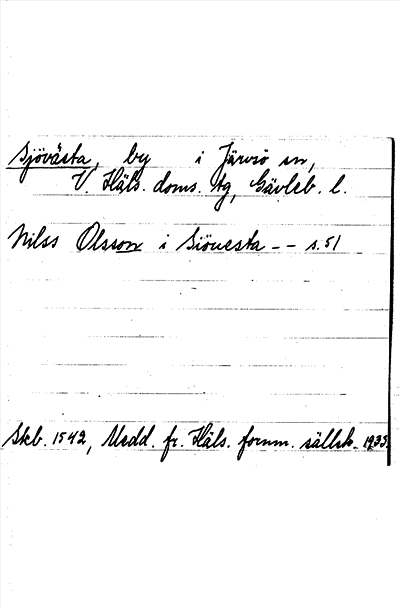 Sjövästa, by i Järvsö sn,
V. Häls. doms. tg, Gävleb. l.
Nilss Olsson i Siöuesta - - s. 51
Skb. 1542, Medd. fr. Häls. fornm. sällsk. 1935.